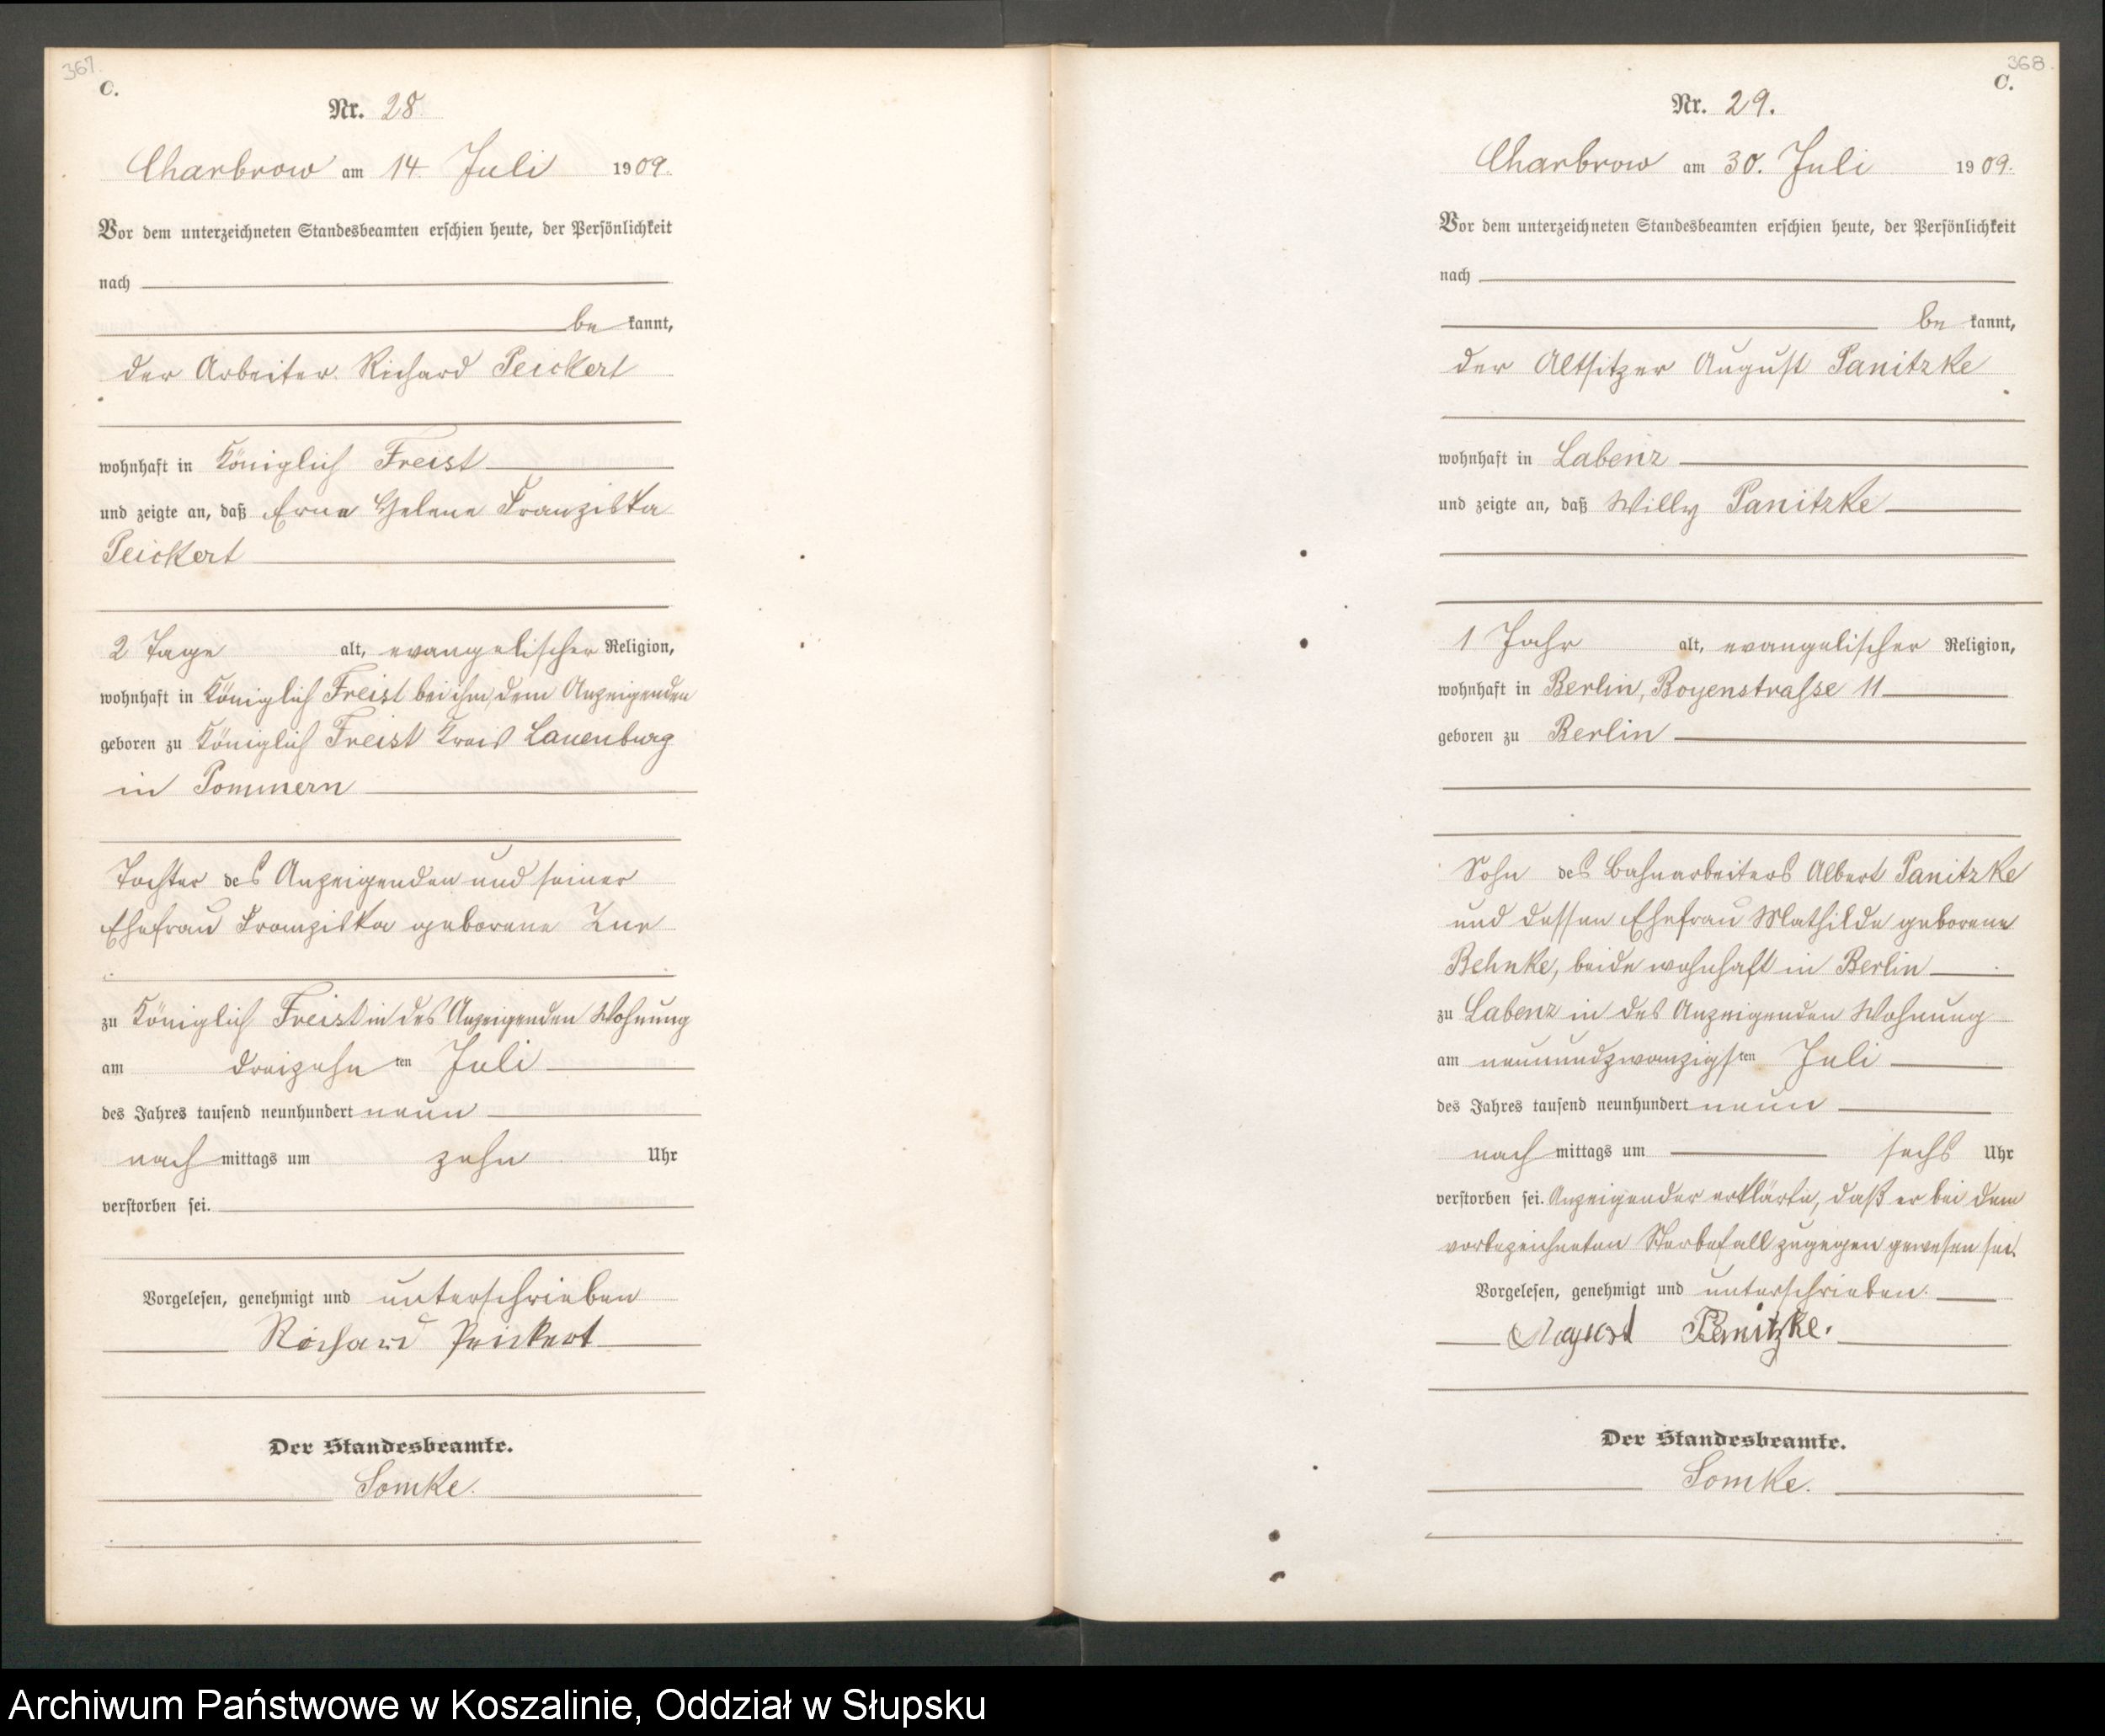 367.
C.
Nr. 28.
Charbrow am 14. Juli 1909.
Vor dem unterzeichneten Standesbeamten erschien heute, der Persönlichkeit
nach
be kannt,
der Arbeiter Richard Peickert
wohnhaft in Königlich Freist
und zeigte an, daß Erna Helene Franziska
Peickert
2 Tage alt, evangelischer Religion,
wohnhaft in Königlich Freist bei ihm, dem Anzeigenden
geboren zu Königlich Freist Kreis Lauenburg
in Pommern
Tochter des Anzeigenden und seiner
Ehefrau Franziska geborene
zu Königlich Freist in des Anzeigenden Wohnung
am dreizehn ten Juli
des Jahres tausend neunhundert neun
nach mittags um zehn Uhr
verstorben sei.
Vorgelesen, genehmigt und unterschrieben
Richard Peickert
Der Standesbeamte.
Somke.
368.
C.
Nr. 29.
Charbrow am 30. Juli 1909.
Vor dem unterzeichneten Standesbeamten erschien heute, der Persönlichkeit
nach
be kannt,
der Altsitzer August Panitzke
wohnhaft in Labenz
und zeigte an, daß Willy Panitzke
1 Jahr alt, evangelischer Religion,
wohnhaft in Berlin, Boyenstraße 11
geboren zu Berlin
Sohn des Bahnarbeiters Albert Panitzke
und dessen Ehefrau Mathilde geborene
Behnke, beide wohnhaft in Berlin
zu Labenz in des Anzeigenden Wohnung
am neunundzwanzigsten Juli
des Jahres tausend neunhundert neun
nach mittags um sechs Uhr
verstorben sei. Anzeigender erklärte, daß er bei dem
vorbezeichneten Sterbefall zugegen gewesen sei.
Vorgelesen, genehmigt und unterschrieben.
August Panitzke.
Der Standesbeamte.
Somke.
Archiwum Państwowe w Koszalinie, Oddział w Słupsku